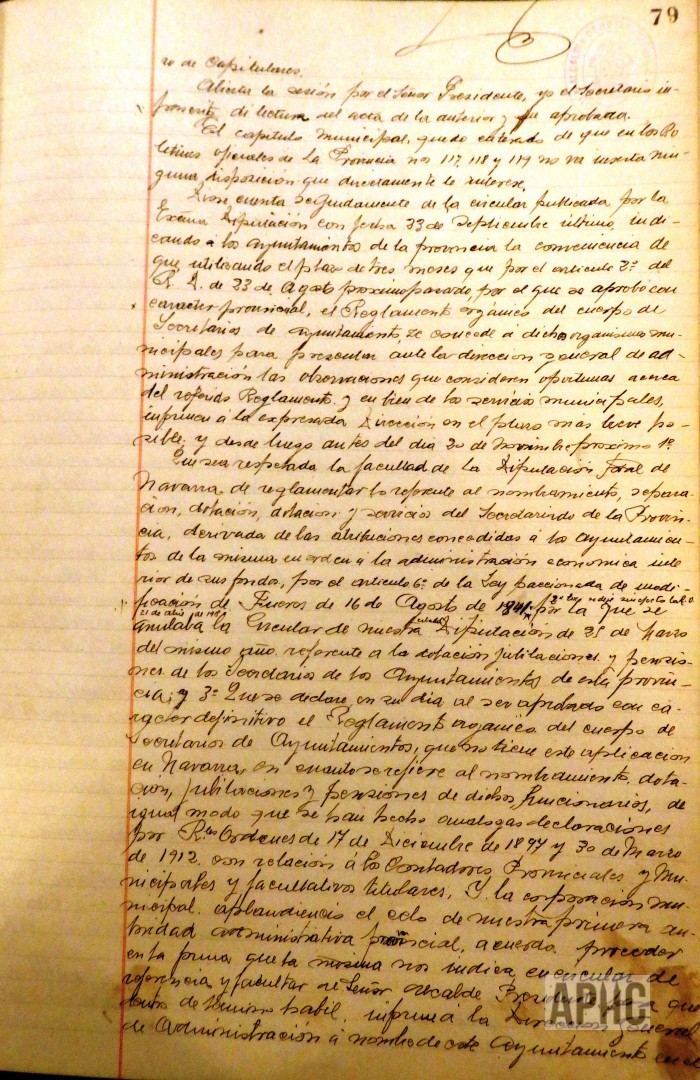 79
ro de Capitulares.
Abierta la sesión por el Señor Presidente, yo el Secretario in-
frascrito di lectura del acta de la anterior y fue aprobada.
El capitulo municipal, quedo enterado de que en los Bo-
letines oficiales de la Provincia nos 117, 118 y 119 no va inserta nin-
guna disposición que directamente le interese.
Diose cuenta seguidamente de la circular publicada por la
Excma Diputación con fecha 23 de Septiembre último, indi-
cando á los ayuntamientos de la provincia la conveniencia de
que utilizando el plazo de tres meses que por el articulo 2º del
R. D. de 23 de Agosto proximo pasado, por el que se aprobó con
caracter provincial, el Reglamento orgánico del cuerpo de
Secretarios de ayuntamiento, se concede á dichos organismos mu-
nicipales para presentar ante la direccion general de ad-
ministración las observaciones que consideren oportunas acerca
del referido Reglamento y en bien de los servicios municipales,
informen á la expresada Dirección en el plazo mas breve po-
sible, y desde luego antes del dia 20 de Noviembre proximo 1º
Que sea respetada la facultad de la Diputación Foral de
Navarra, de reglamentar lo referente al nombramiento, separa-
cion, dotación, dotacion y servicios del Secretariado de la Provin-
cia, derivada de las atribuciones concedidas á los Ayuntamien-
tos de la misma en orden á la administración economica inte-
rior de sus fondos, por el articulo 6º de la Ley paccionada de modi-
ficación de Fueros de 16 de Agosto de 1841. por la que se
anulaba la Circular de nuestra Diputación de 25 de Marzo
del mismo año, referente a la dotación jubilaciones y pensio-
nes de los Secretarios de los Ayuntamientos de esta provin-
cia; y 3º Que se declare, en su dia al ser aprobado con ca-
racter definitivo el Reglamento organico del cuerpo de
Secretarios de Ayuntamientos, que no tiene este aplicacion
en Navarra, en cuanto se refiere al nombramiento, dota-
cion, jubilaciones y pensiones de dichos funcionarios, de
igual modo que se han hecho analogas declaraciones
por Rles Ordenes de 17 de Diciembre de 1897 y 30 de Marzo
de 1912. con relación á los Contadores Provinciales y Mu-
nicipales y facultativos titulares. Y la corporación mu-
nicipal, aplaudiendo el celo de nuestra primera au-
toridad administrativa provincial, acuerda proceder
en la forma que la misma nos indica en circular de
referencia y facultar al Señor Alcalde Presidente para que
dentro de termino habil, informe á la Direccion general
de Administración á nombre de este Ayuntamiento en el
АРИС